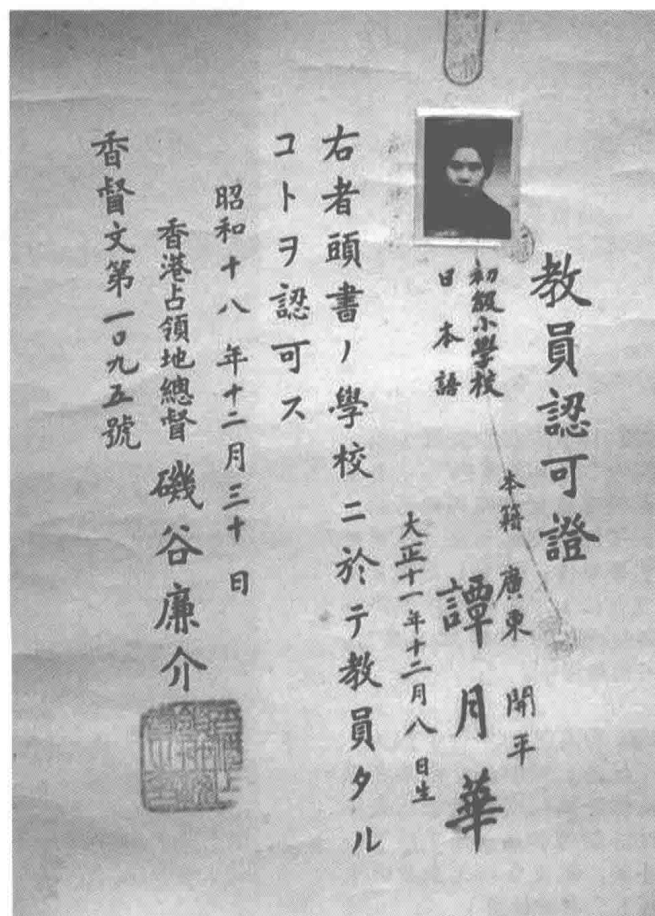 教員認可證
本籍 廣東 開平
初級小學校
日本語
譚月華
大正十一年十二月八日生
右者頭書ノ學校ニ於テ教員タル
コトヲ認可ス
昭和十八年十二月三十日
香港占領地總督 磯谷廉介
香督文第一〇九五號